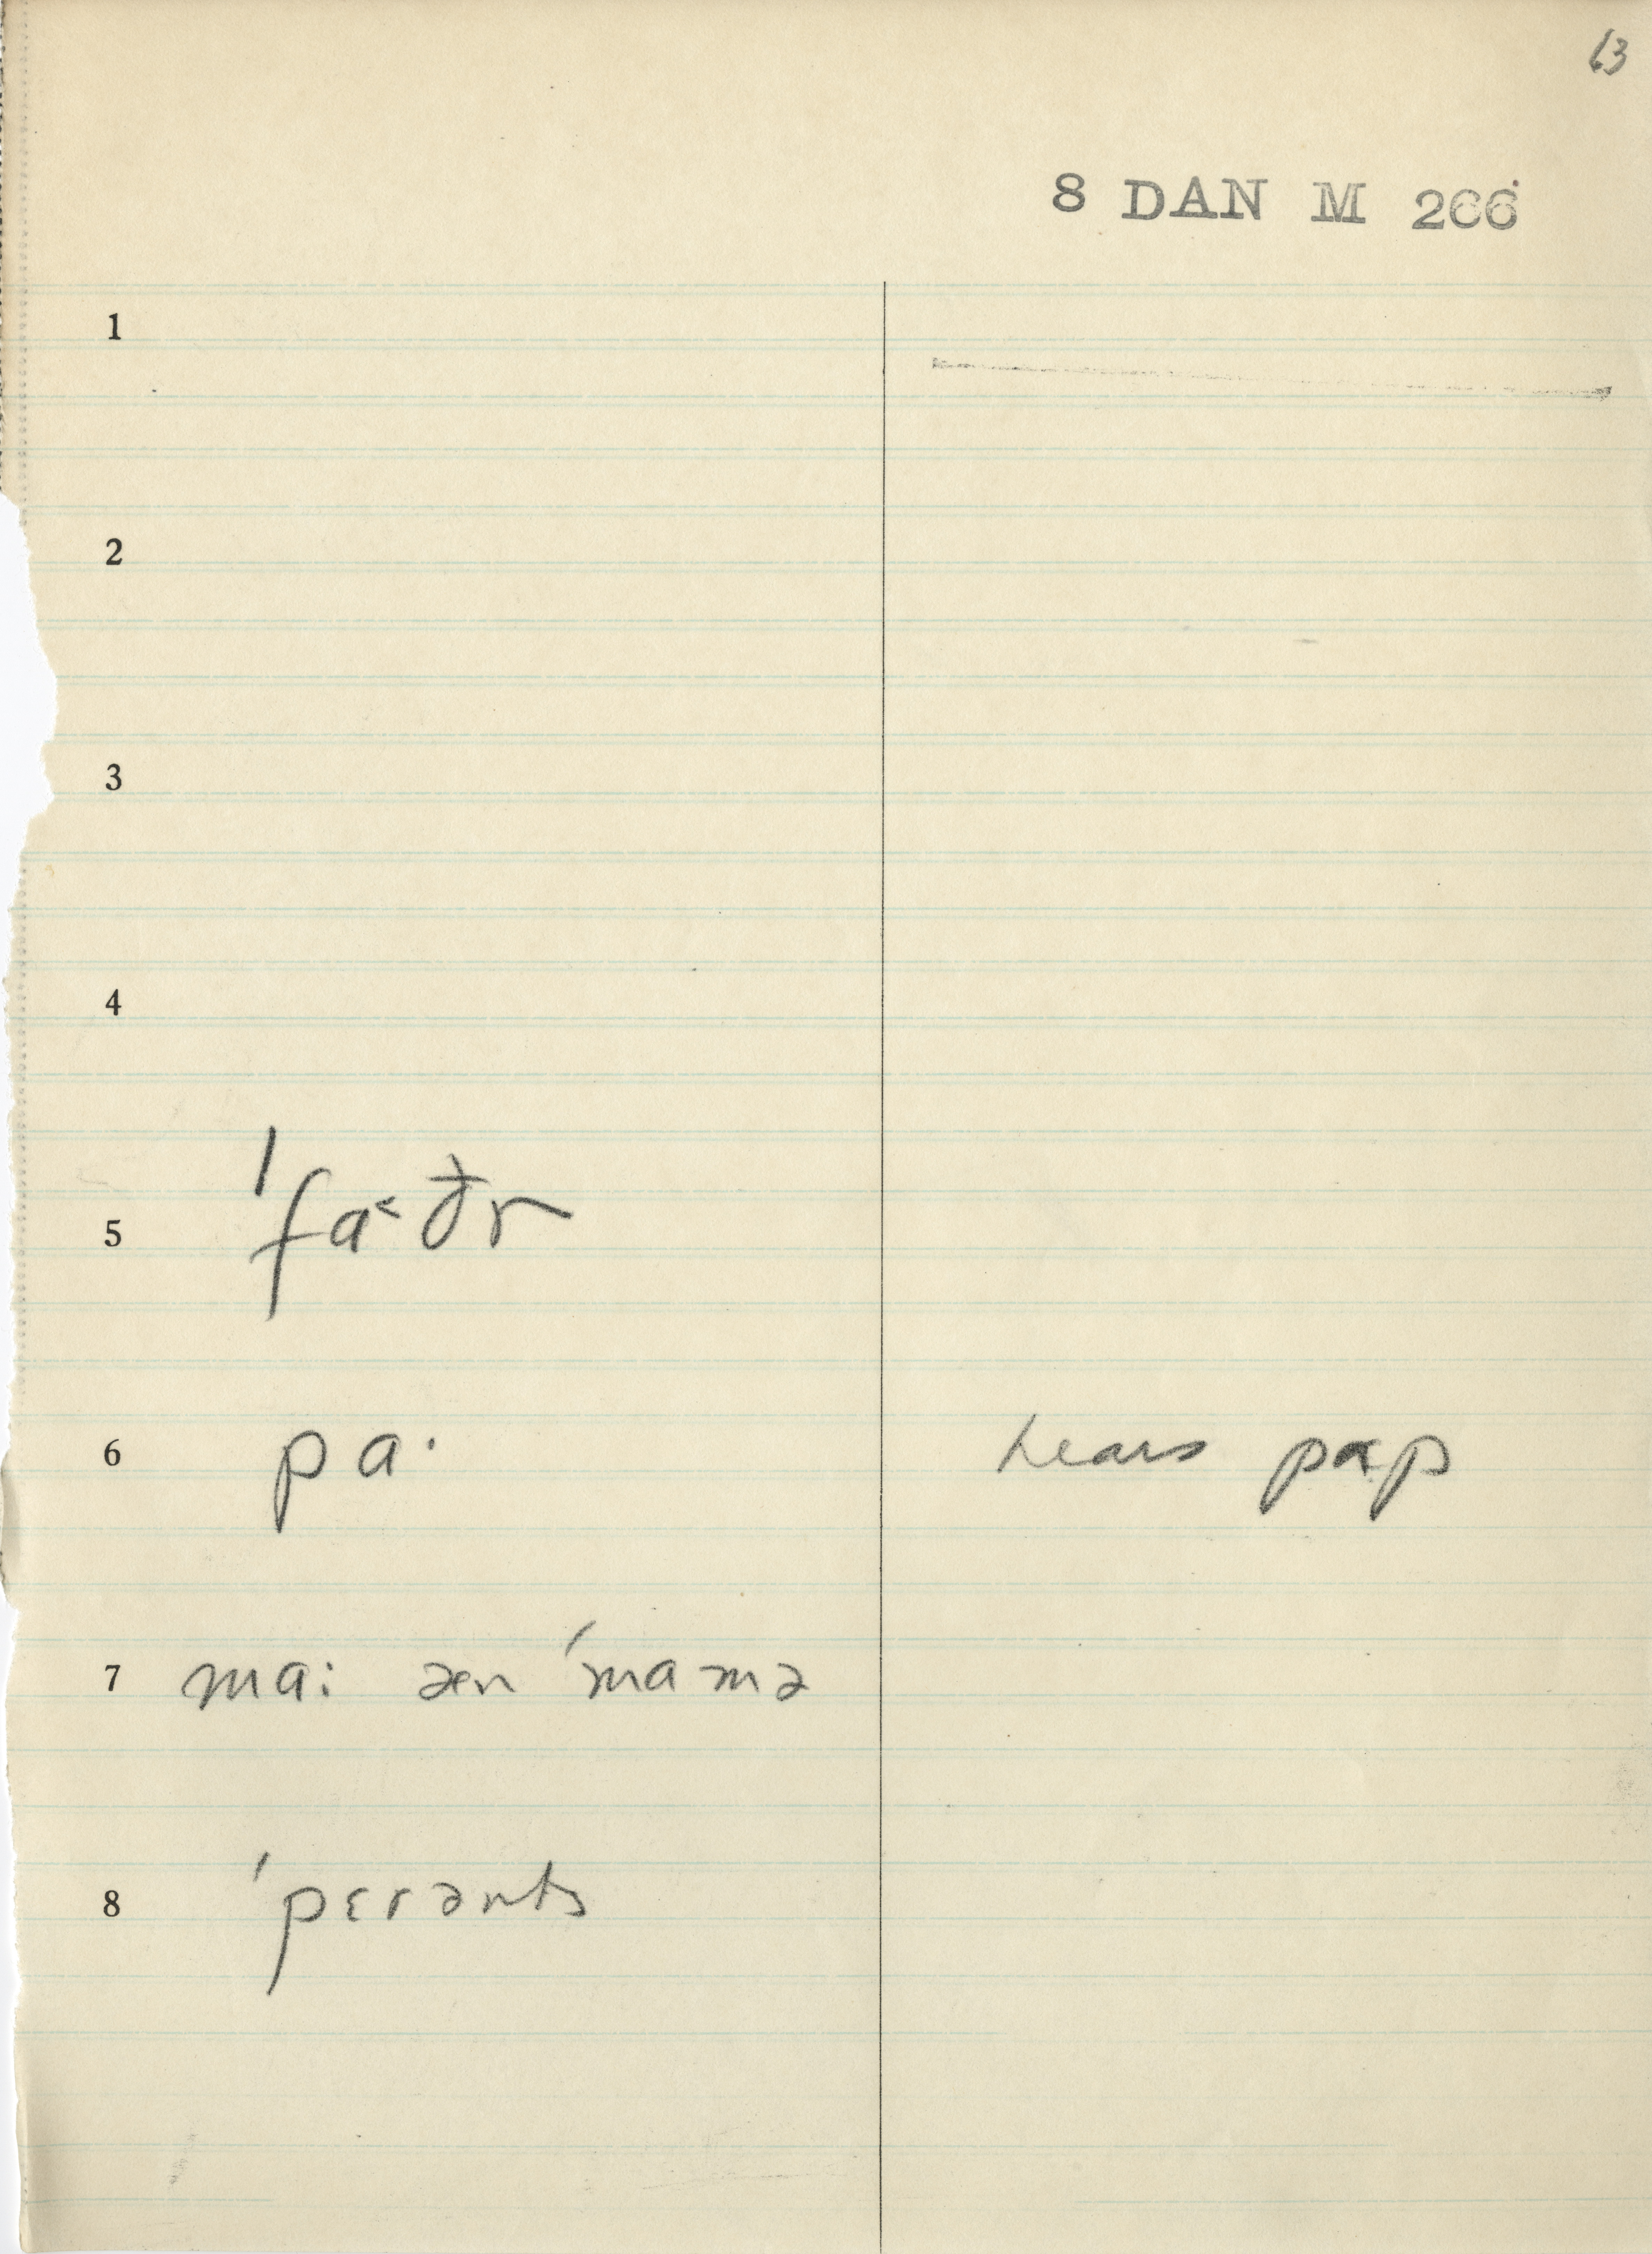 63
8 DAN M 266
1
2
3
4
5 ˈfa˂ðr
6 pa· hears pap
7 ma: æn ˈmamə
8 ˈpɛrənts